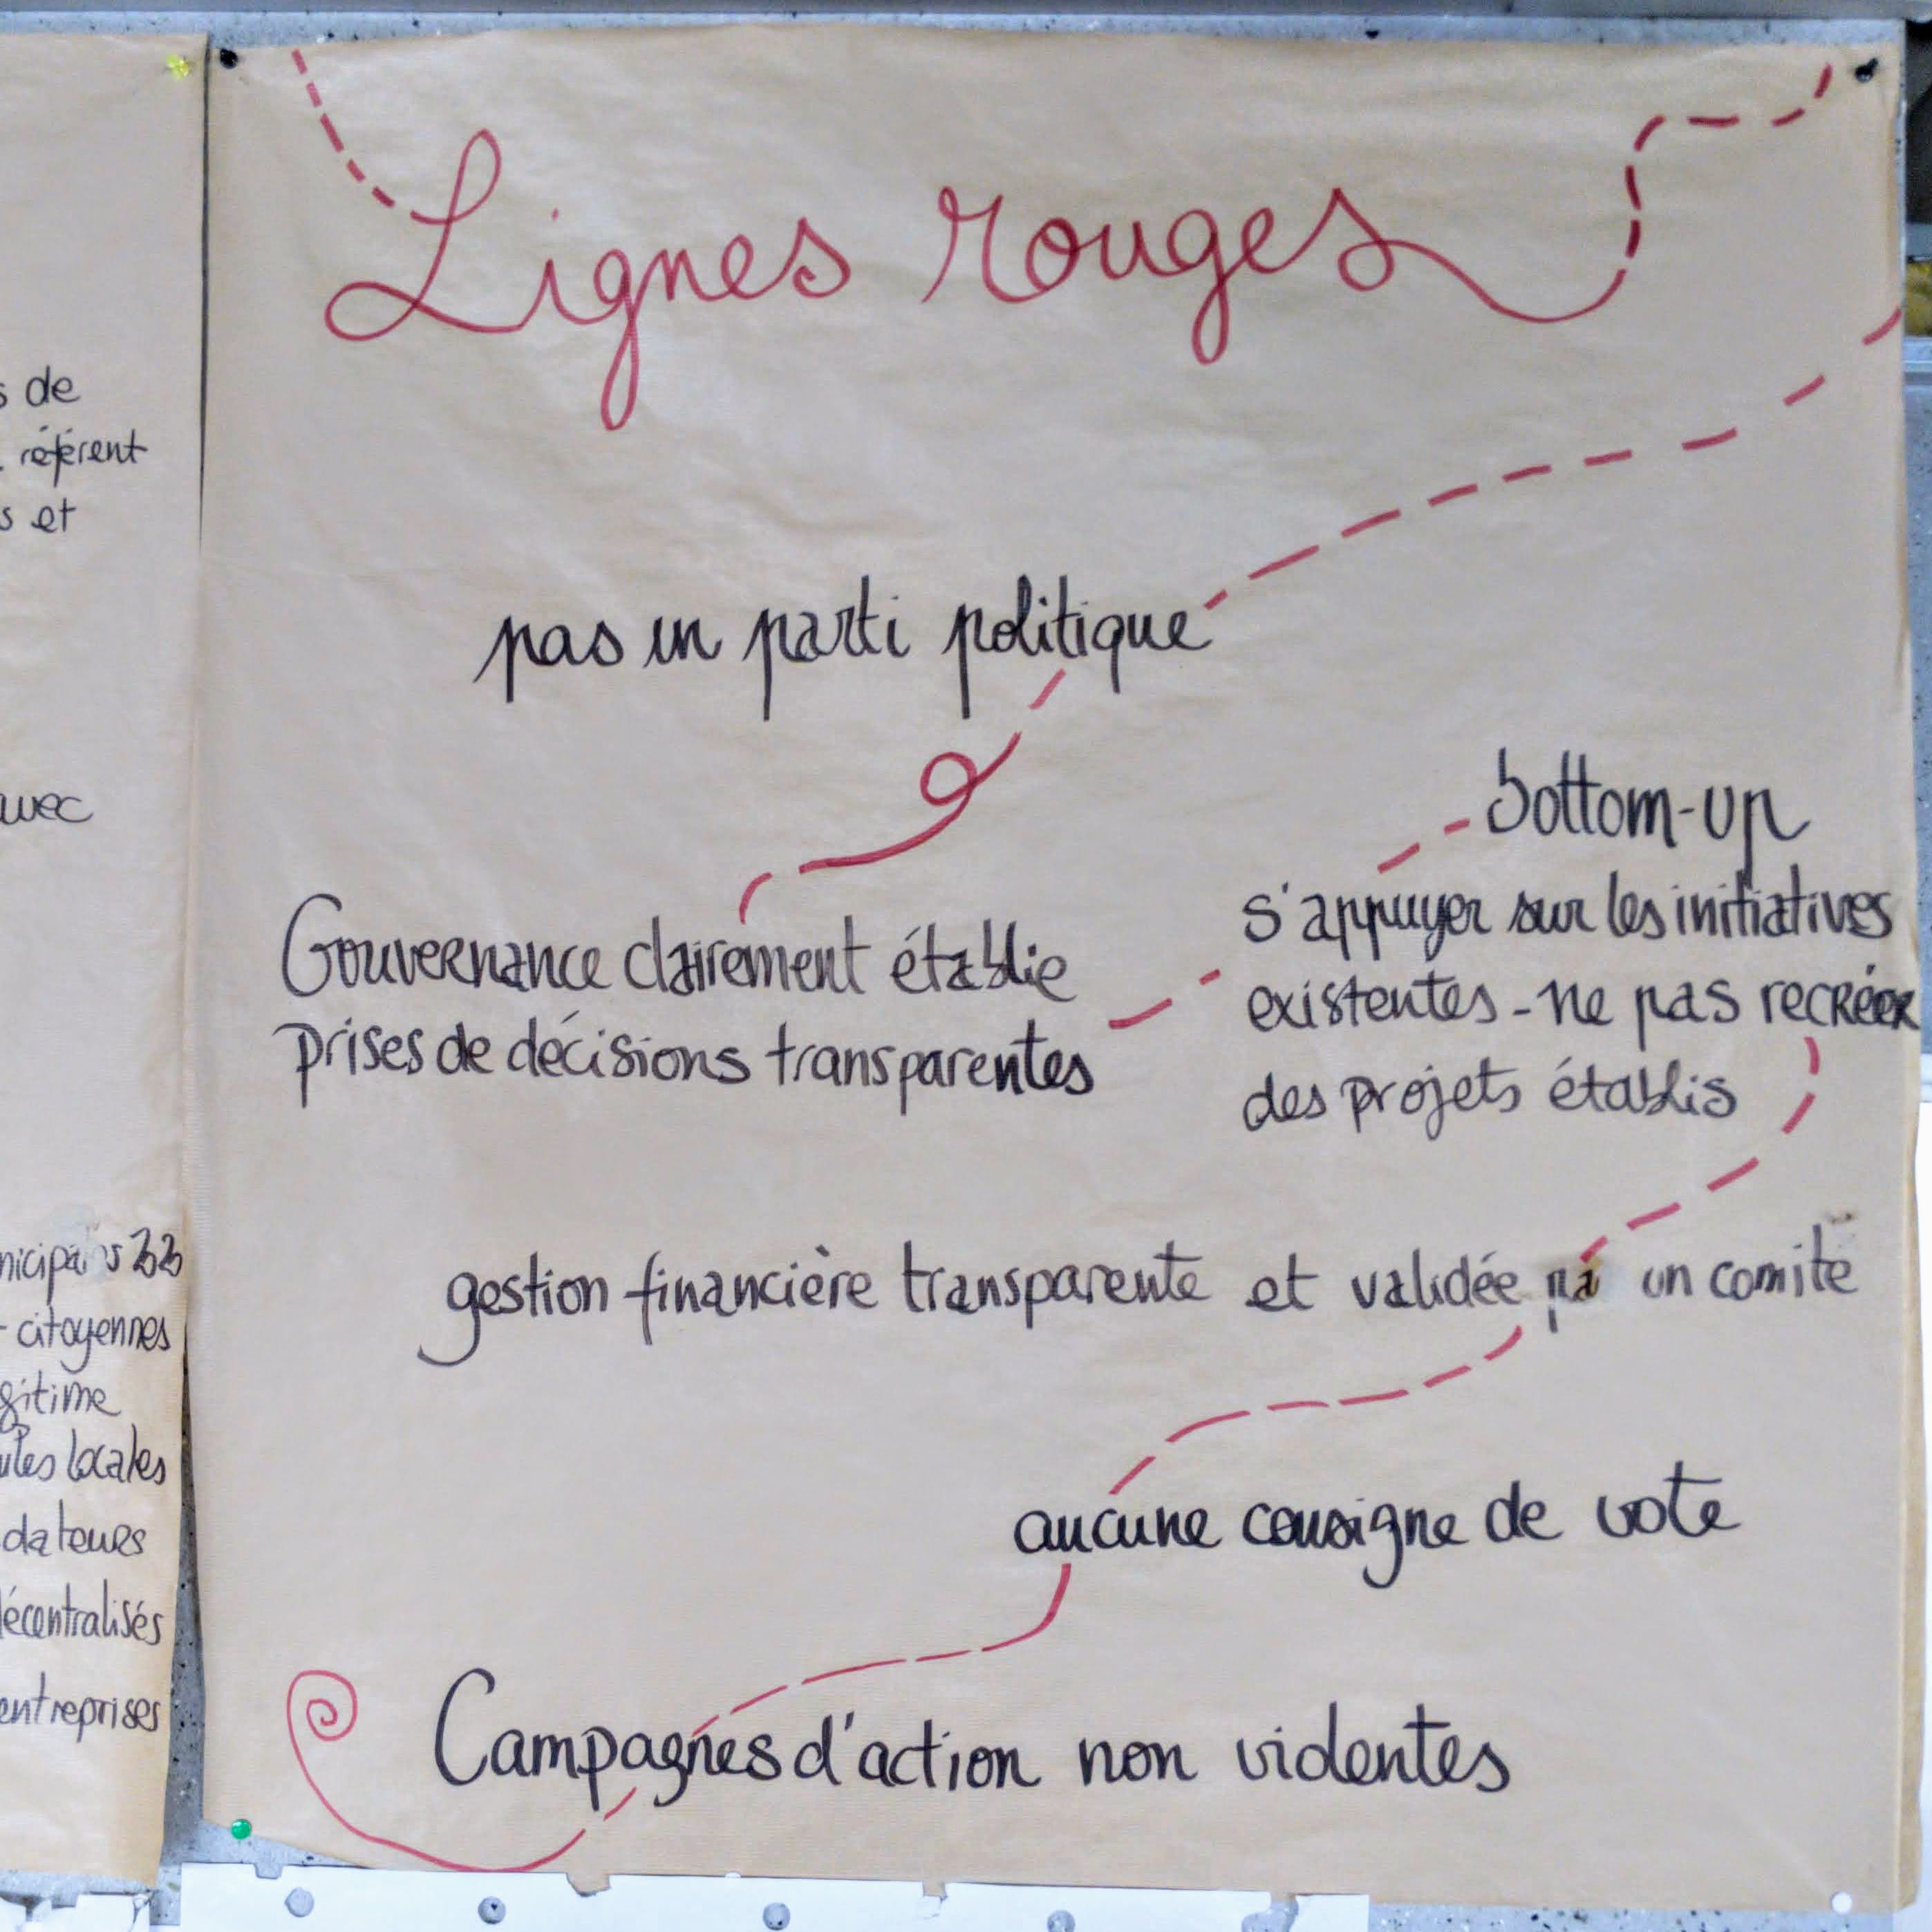 Lignes rouges
pas un parti politique
bottom-up
s'appuyer sur les initiatives
existentes - ne pas recréer
des projets établis
Gouvernance clairement établie
prises de décisions transparentes
gestion financière transparente et validée pa un comité
aucune consigne de vote
Campagnes d'action non violentes
s de
référent
s et
avec
citoyennes
gitime
locales
dateurs
écentralisés
entreprises